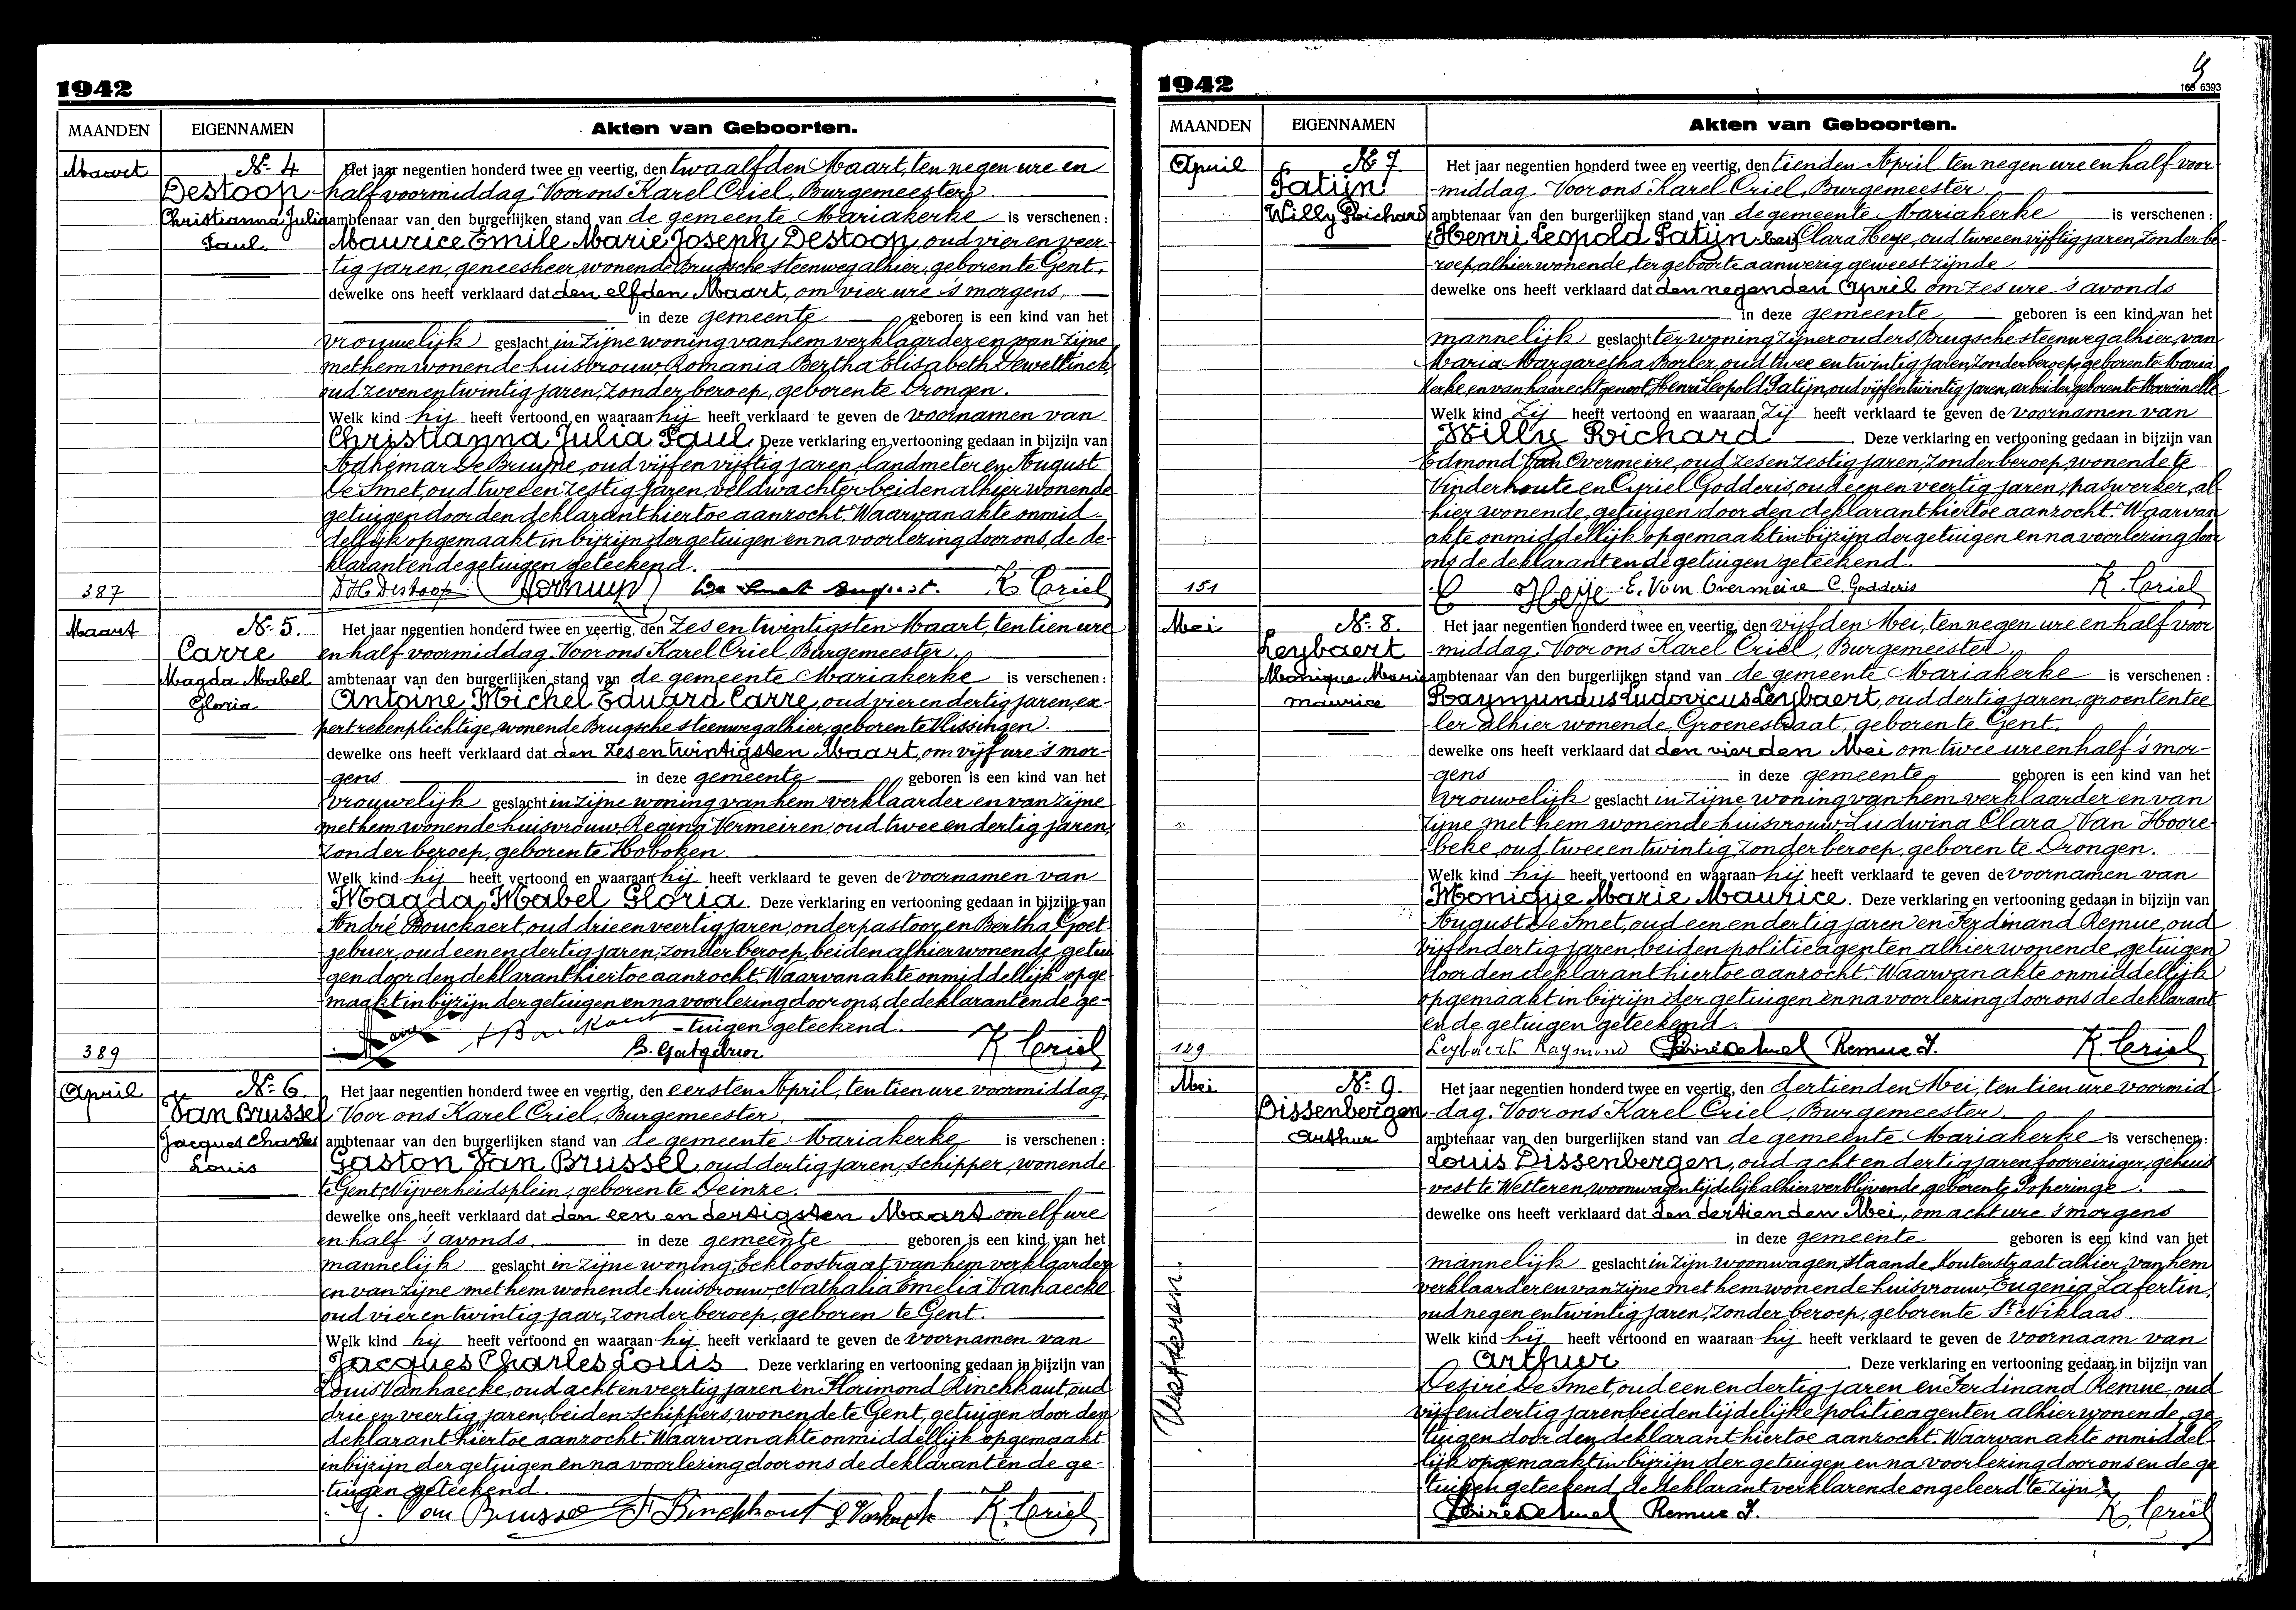 1942
MAANDEN EIGENNAMEN Akten van Geboorten.
Maart Nr. 4 Het jaar negentien honderd twee en veertig, den twaalfden Maart, ten negen ure en
Destoop half voormiddag. Voor ons Karel Criel, Burgemeester
Christianna Julia ambtenaar van den burgerlijken stand van de gemeente Mariakerke is verschenen:
Paul. Maurice Emile Marie Joseph Destoop, oud vier en veer-
tig jaren, geneesheer, wonende Brugsche steenweg alhier, geboren te Gent,
dewelke ons heeft verklaard dat den elfden Maart, om vier ure 's morgens,
in deze gemeente geboren is een kind van het
vrouwelijk geslacht in zijne woning van hem verklaarder en van zijne
met hem wonende huisvrouw Romania Bertha Elisabeth Dewettinck,
oud zeven en twintig jaren, zonder beroep, geboren te Drongen.
Welk kind hij heeft vertoond en waaraan hij heeft verklaard te geven de voornamen van
Christianna Julia Paul. Deze verklaring en vertooning gedaan in bijzijn van
Adhémar De Bruyne, oud vijf en vijftig jaren, landmeter en August
De Smet, oud twee en zestig jaren, veldwachter beiden alhier wonende
getuigen door den deklarant hiertoe aanzocht. Waarvan akte onmid-
dellijk opgemaakt in bijzijn der getuigen en na voorlezing door ons, de de-
klarant en de getuigen geteekend.
387 Destoop De Smet August. K. Criel
Maart Nr. 5. Het jaar negentien honderd twee en veertig, den zes en twintigsten Maart, ten tien ure
Carre en half voormiddag. Voor ons Karel Criel, Burgemeester.
Magda Mabel ambtenaar van den burgerlijken stand van de gemeente Mariakerke is verschenen:
Gloria Antoine Michel Eduard Carre, oud vier en dertig jaren, ex-
pert rekenplichtige, wonende Brugsche steenweg alhier, geboren te Vlissingen.
dewelke ons heeft verklaard dat den zes en twintigsten Maart, om vijf ure 's mor-
gens in deze gemeente geboren is een kind van het
vrouwelijk geslacht in zijne woning van hem verklaarder en van zijne
met hem wonende huisvrouw Regina Vermeiren, oud twee en dertig jaren,
zonder beroep, geboren te Hoboken.
Welk kind hij heeft vertoond en waaraan hij heeft verklaard te geven de voornamen van
Magda Mabel Gloria. Deze verklaring en vertooning gedaan in bijzijn van
André Bouckaert, oud drie en veertig jaren, onderpastoor, en Bertha Goet-
gebuer, oud een en dertig jaren, zonder beroep, beiden alhier wonende, getui
gen door den deklarant hiertoe aanzocht. Waarvan akte onmiddellijk opge
maakt in bijzijn der getuigen en na voorlezing door ons, de deklarant en de ge-
tuigen geteekend.
389 Bouckaert B. Goetgebuer K. Criel
April Nr. 6. Het jaar negentien honderd twee en veertig, den eersten April, ten tien ure voormiddag,
Van Brussel Voor ons Karel Criel, Burgemeester,
Jacques Charles ambtenaar van den burgerlijken stand van de gemeente Mariakerke is verschenen:
Louis Gaston Van Brussel, oud dertig jaren, schipper, wonende
te Gent Nijverheidsplein, geboren te Deinze.
dewelke ons heeft verklaard dat den een en dertigsten Maart om elf ure
en half 's avonds. in deze gemeente geboren is een kind van het
mannelijk geslacht in zijne woning, Eekloostraat van hem verklaarder
en van zijne met hem wonende huisvrouw, Nathalia Emelia Vanhaecke
oud vier en twintig jaar, zonder beroep, geboren te Gent.
Welk kind hij heeft vertoond en waaraan hij heeft verklaard te geven de voornamen van
Jacques Charles Louis. Deze verklaring en vertooning gedaan in bijzijn van
Louis Vanhaecke, oud acht en veertig jaren en Florimond Rinckhaut, oud
drie en veertig jaren, beiden schippers, wonende te Gent, getuigen door den
deklarant hiertoe aanzocht. Waarvan akte onmiddellijk opgemaakt
in bijzijn der getuigen en na voorlezing door ons de deklarant en de ge-
tuigen geteekend.
G. Van Brussel F Rinckhout K. Criel
1942
166 6393
MAANDEN EIGENNAMEN Akten van Geboorten.
April Nr. 7. Het jaar negentien honderd twee en veertig, den tienden April ten negen ure en half voor
Patijn middag. Voor ons Karel Criel, Burgemeester
Willy Richard ambtenaar van den burgerlijken stand van de gemeente Mariakerke is verschenen:
Henri Leopold Patijn Clara Heye, oud twee en vijftig jaren, zonder be-
roep, alhier wonende, ter geboorte aanwezig geweest zijnde.
dewelke ons heeft verklaard dat den negenden April om zes ure 's avonds
in deze gemeente geboren is een kind van het
mannelijk geslacht ter woning zijner ouders, Brugsche steenweg alhier, van
Maria Margaretha Borler, oud twee en twintig jaren, zonder beroep, geboren te Maria
kerke, en van haar echtgenoot, Henri Leopold Patijn, oud vijf en twintig jaren, arbeider, geboren te Marcinelle
Welk kind zij heeft vertoond en waaraan zij heeft verklaard te geven de voornamen van
Willy Richard. Deze verklaring en vertooning gedaan in bijzijn van
Edmond Van Overmeire, oud zes en zestig jaren, zonder beroep, wonende te
Vinderhoute en Cyriel Godderis, oud een en veertig jaren, paswerker, al-
hier wonende, getuigen door den deklarant hiertoe aanzocht. Waarvan
akte onmiddellijk opgemaakt in bijzijn der getuigen en na voorlezing door
ons de deklarant en de getuigen geteekend.
151 C Heye E. Van Overmeire C. Godderis K. Criel
Mei Nr. 8. Het jaar negentien honderd twee en veertig, den vijfden Mei, ten negen ure en half voor
Leybaert middag. Voor ons Karel Criel, Burgemeester
Monique Marie ambtenaar van den burgerlijken stand van de gemeente Mariakerke is verschenen:
Maurice Raymundus Ludovicus Leybaert, oud dertig jaren, groententee
ler alhier wonende, Groenestraat, geboren te Gent.
dewelke ons heeft verklaard dat den vierden Mei, om twee ure en half 's mor-
gens in deze gemeente geboren is een kind van het
vrouwelijk geslacht in zijne woning van hem verklaarder en van
zijne met hem wonende huisvrouw, Ludwina Clara Van Hoore-
beke, oud twee en twintig, zonder beroep, geboren te Drongen.
Welk kind hij heeft vertoond en waaraan hij heeft verklaard te geven de voornamen van
Monique Marie Maurice. Deze verklaring en vertooning gedaan in bijzijn van
August De Smet, oud een en dertig jaren en Ferdinand Remue, oud
vijf en dertig jaren, beiden politieagenten alhier wonende, getuigen
door den deklarant hiertoe aanzocht. Waarvan akte onmiddellijk
opgemaakt in bijzijn der getuigen en na voorlezing door ons de deklarant
en de getuigen geteekend.
149 Leybaert Raymond Remue F. K. Criel
Mei Nr. 9. Het jaar negentien honderd twee en veertig, den dertienden Mei, ten tien ure voormid
Dissenbergen dag. Voor ons Karel Criel, Burgemeester
Arthur ambtenaar van den burgerlijken stand van de gemeente Mariakerke is verschenen:
Louis Dissenbergen, oud acht en dertig jaren, foorreiziger, gehuis
vest te Wetteren, woonwagen tijdelijk alhier verblijvende, geboren te Poperinge.
dewelke ons heeft verklaard dat den dertienden Mei, om acht ure 's morgens
in deze gemeente geboren is een kind van het
mannelijk geslacht in zijn woonwagen, staande, Kouterstraat alhier van hem
verklaarder en van zijne met hem wonende huisvrouw, Eugenia Lafertin,
oud negen en twintig jaren, zonder beroep, geboren te St. Niklaas.
Welk kind hij heeft vertoond en waaraan hij heeft verklaard te geven de voornaam van
Arthur. Deze verklaring en vertooning gedaan in bijzijn van
Desiré De Smet, oud een en dertig jaren en Ferdinand Remue, oud
vijf en dertig jaren beiden tijdelijke politieagenten alhier wonende, ge
tuigen door den deklarant hiertoe aanzocht. Waarvan akte onmiddel-
lijk opgemaakt in bijzijn der getuigen en na voorlezing door ons en de ge
tuigen geteekend, de deklarant verklarende ongeleerd te zijn.
Remue F. K. Criel
Wetteren.